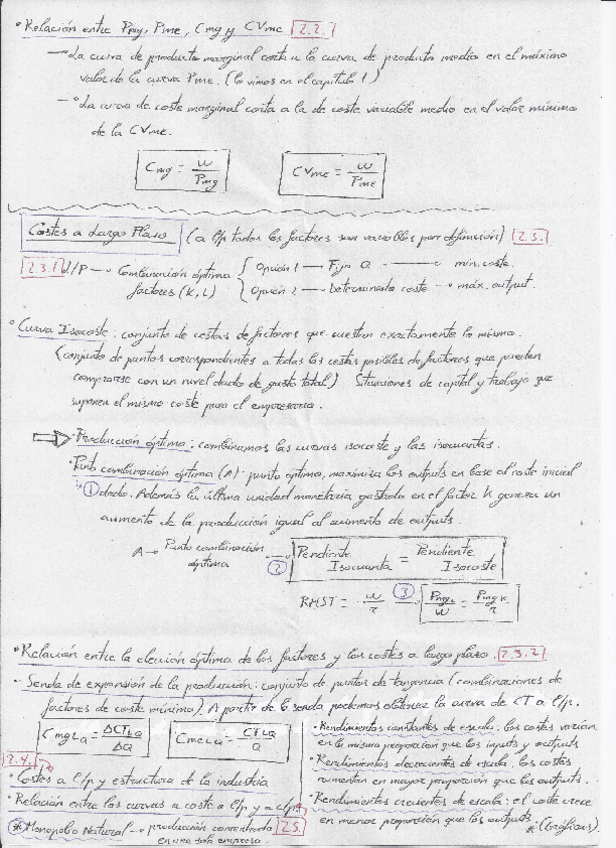 • Relación entre Pmg, Pme, Cmg y CVme [2.2.]
→ La curva de producto marginal corta a la curva de producto medio en el máximo
valor de la curva Pme. (lo vimos en el capítulo 1)
→ • La curva de coste marginal corta a la de coste variable medio en el valor mínimo
de la CVme.
Cmg = w/Pmg CVme = w/Pme
Costes a Largo Plazo (a l/p todos los factores son variables por definición) [2.3.]
[2.3.1] L/P → Combinación óptima { Opción 1 — Fijo Q → min. coste.
factores (K, L) { Opción 2 — Determinado coste → máx. output.
• Curva Isocoste: conjunto de cestas de factores que cuestan exactamente lo mismo.
(conjunto de puntos correspondientes a todas las cestas posibles de factores que pueden
comprarse con un nivel dado de gasto total) Situaciones de capital y trabajo que
suponen el mismo coste para el empresario.
⇒ • Producción óptima: combinamos las curvas isocoste y las isocuantas.
• Punto combinación óptima (A): punto óptimo, maximiza los outputs en base al coste inicial
① dado. Además la última unidad monetaria gastada en el factor K genera un
aumento de la producción igual al aumento de outputs.
A → Punto combinación óptima → ② Pendiente Isocuanta = Pendiente Isocoste
RMST = w/r ③ → PmgL/w = PmgK/r
• Relación entre la elección óptima de los factores y los costes a largo plazo. [2.3.2]
- Senda de expansión de la producción: conjunto de puntos de tangencia (combinaciones de
factores de coste mínimo). A partir de la senda podemos obtener la curva de CT a l/p.
CmgLQ = ΔCTLQ/ΔQ CmeLQ = CTLQ/Q
[2.4.]
• Costes a l/p y estructura de la industria
• Relación entre las curvas a coste a l/p y a c/p [2.5.]
* Monopolio Natural → producción concentrada
en una sola empresa.
• Rendimientos constantes de escala: los costes varían
en la misma proporción que los inputs y outputs
• Rendimientos decrecientes de escala: los costes
aumentan en mayor proporción que los outputs.
• Rendimientos crecientes de escala: el coste crece
en menor proporción que los outputs.
* (Gráficos).